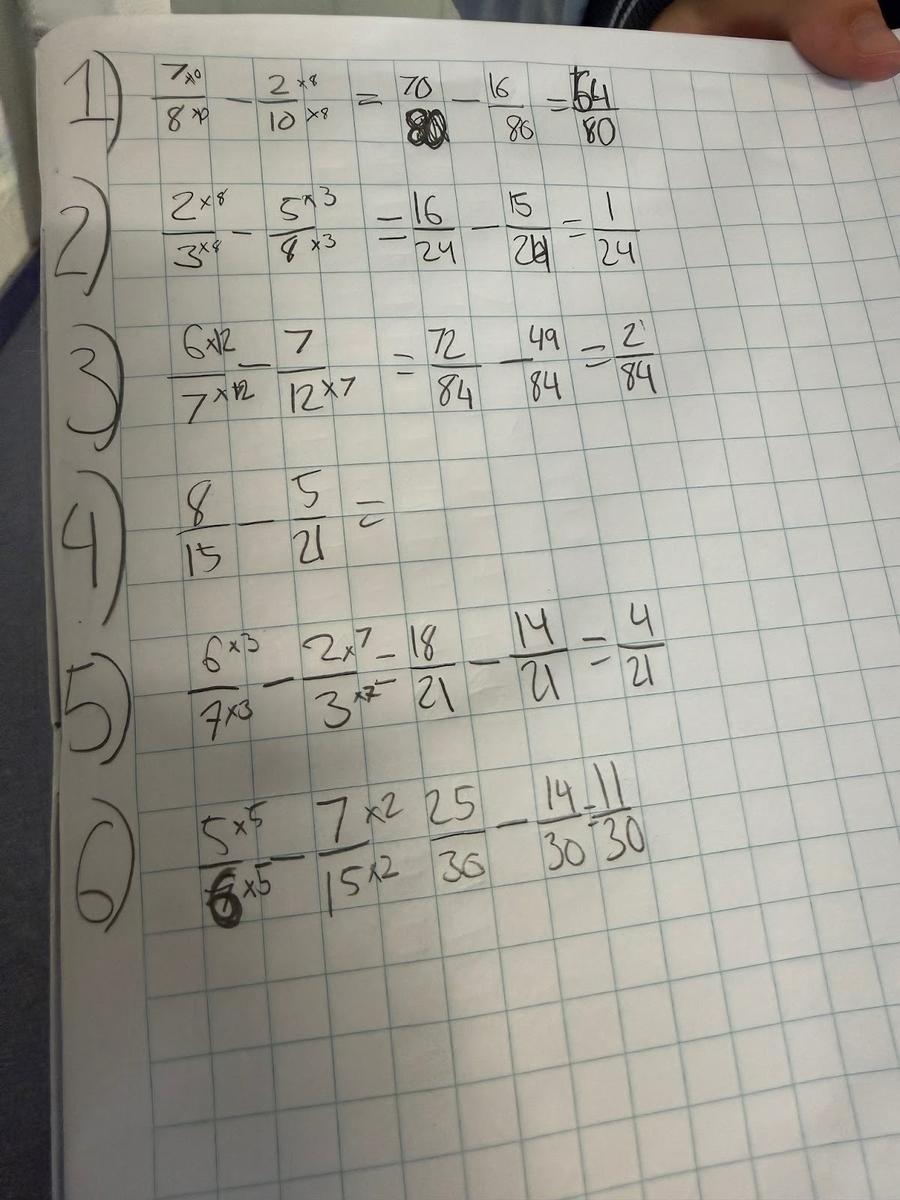 1) 7×10/8×10 - 2×8/10×8 = 70/80 - 16/80 = 54/80
2) 2×8/3×8 - 5×3/8×3 = 16/24 - 15/24 = 1/24
3) 6×12/7×12 - 7/12×7 = 72/84 - 49/84 = 2/84
4) 8/15 - 5/21 =
5) 6×3/7×3 - 2×7/3×7 = 18/21 - 14/21 = 4/21
6) 5×5/6×5 - 7×2/15×2 25/30 - 14/30 = 11/30